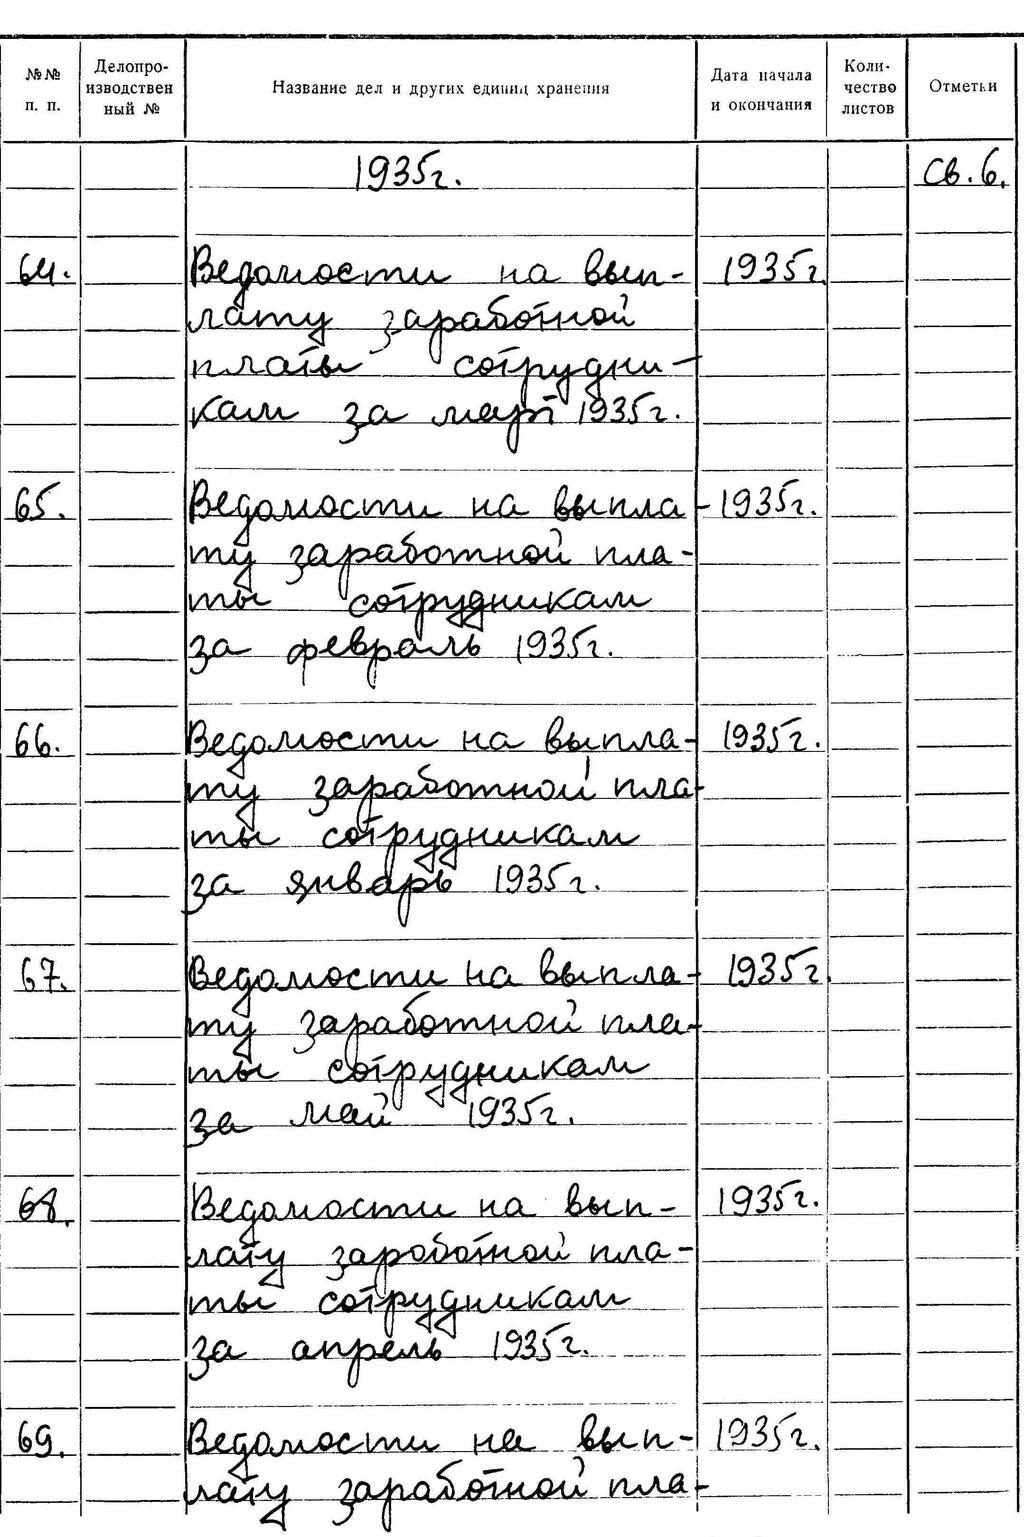 №№ п. п.
Делопро-
изводствен
ный №
Название дел и других единиц хранения
Дата начала
и окончания
Коли-
чество
листов
Отметки
1935г.
Св. 6.
64. Ведомости на вып- 1935г.
лату заработной
платы сотрудни-
кам за март 1935г.
65. Ведомости на выпла- 1935г.
ту заработной пла-
ты сотрудникам
за февраль 1935г.
66. Ведомости на выпла- 1935г.
ту заработной пла-
ты сотрудникам
за январь 1935г.
67. Ведомости на выпла- 1935г.
ту заработной пла-
ты сотрудникам
за май 1935г.
68. Ведомости на вып- 1935г.
лату зароботной пла-
ты сотрудникам
за апрель 1935г.
69. Ведомости на вып- 1935г.
лату заработной пла-